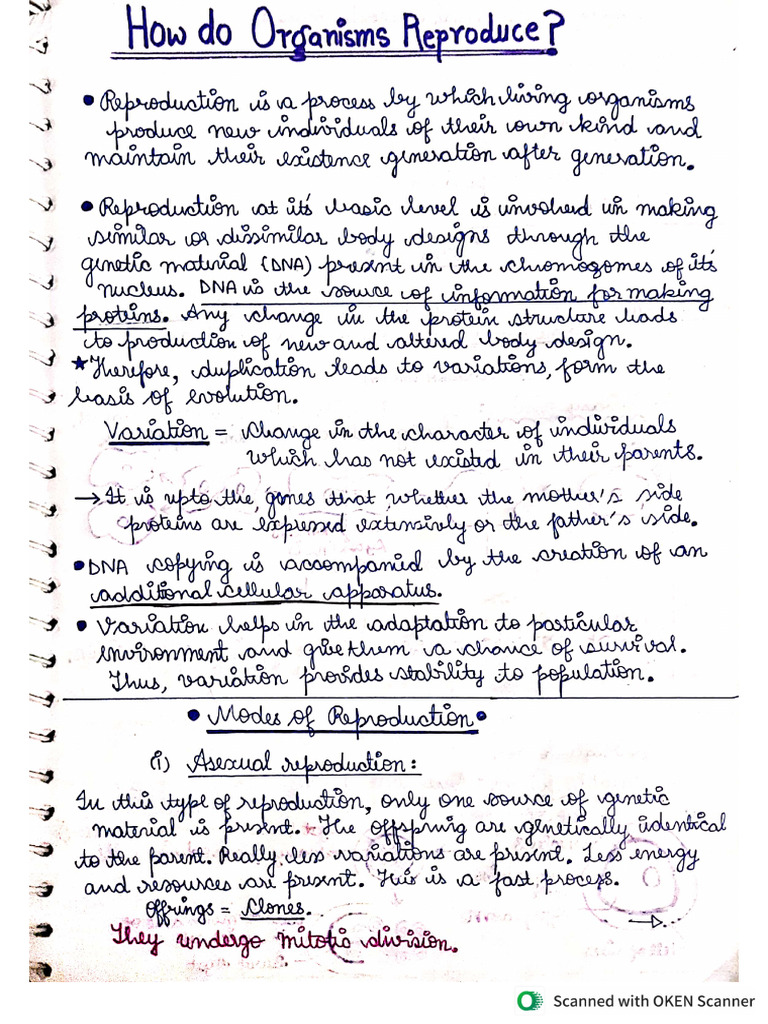 How do Organisms Reproduce?
• Reproduction is a process by which living organisms
produce new individuals of their own kind and
maintain their existence generation after generation.
• Reproduction at its' basic level is involved in making
similar or dissimilar body designs through the
genetic material (DNA) present in the chromogomes of its'
nucleus. DNA is the source of information for making
proteins. Any change in the protein structure leads
to production of new and altered body design.
★ Therefore, duplication leads to variations, form the
basis of evolution.
Variation = change in the character of individuals
which has not existed in their parents.
→ It is upto the genes that whether the mother's side
proteins are expressed extensively or the father's side.
• DNA copying is accompanied by the creation of an
additional cellular apparatus.
• Variation helps in the adaptation to particular
environment and give them a chance of survival.
Thus, variation provides stability to population.
• Modes of Reproduction •
(i) Asexual reproduction:
In this type of reproduction, only one source of genetic
material is present. The offspring are genetically identical
to the parent. Really less variations are present. Less energy
and resources are present. This is a fast process.
Offrings = Clones.
They undergo mitotic division.
Scanned with OKEN Scanner